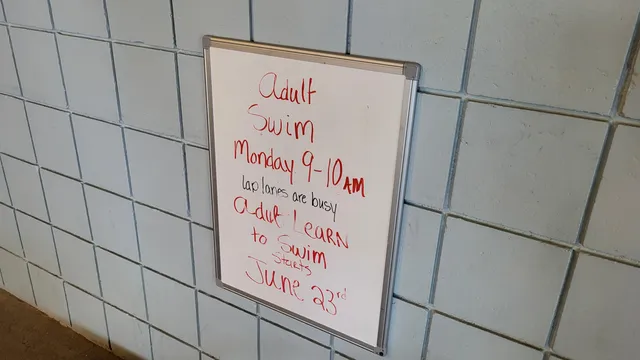 Adult
Swim
Monday 9-10 AM
lap lanes are busy
Adult LEARN
to Swim
Starts
June 23rd